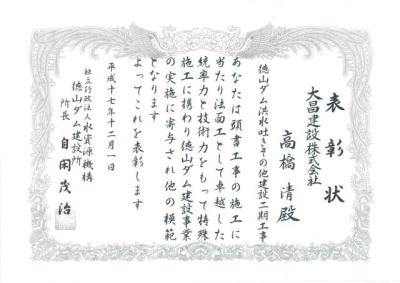 表彰状
大昌建設株式会社
高橋清殿
徳山ダム洪水吐きその他建設二期工事
あなたは頭書工事の施工に
当たり法面工として卓越した
統率力と技術力をもって特殊
施工に携わり徳山ダム建設事業
の実施に寄与され他の模範
となります
よってこれを表彰します
平成十七年十二月一日
独立行政法人水資源機構
徳山ダム建設所
所長 自閑茂治